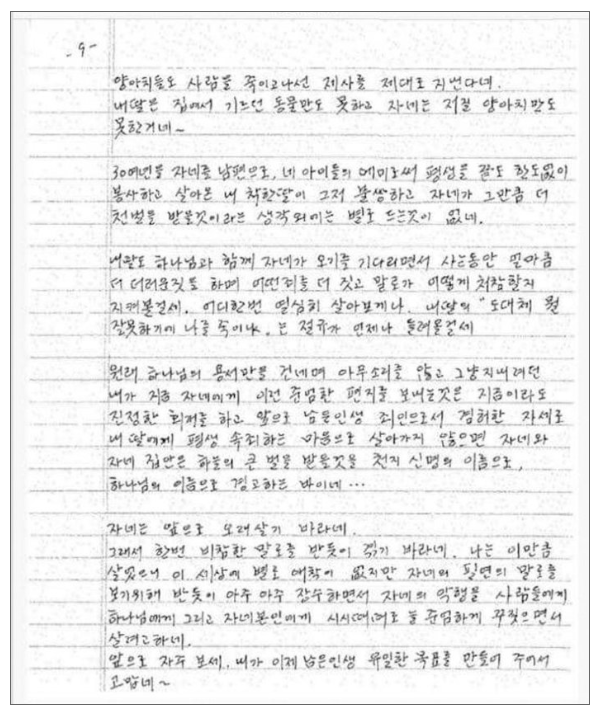 - 9 -
양아치들도 사람을 죽이고나선 제사를 제대로 지낸다네.
내딸은 집에서 기르던 동물만도 못하고 자네는 저질 양아치만도
못한거네~
30여년을 자네를 남편으로, 네 아이들의 에미로써 평생을 끝도 한도없이
봉사하고 살아온 내 착한딸이 그저 불쌍하고 자네가 그만큼 더
천벌을 받을것이라는 생각외에는 별로 드는것이 없네.
내딸도 하나님과 함께 자네가 오기를 기다리면서 사는동안 얼마큼
더 더러운짓을 하며 어떤죄를 더 짓고 말로가 어떻게 처참할지
지켜볼걸세. 어디한번 열심히 살아보게나. 내딸의 "도대체 뭘
잘못하기에 나를 속이나. 는 절규가 언제나 들려올걸세
원래 하나님의 용서만을 건네며 아무소리를 않고 그냥지내려던
내가 지금 자네에게 이런 준엄한 편지를 보내는것은 지금이라도
진정한 회개를 하고 앞으로 남은인생 죄인으로서 겸허한 자세로
내 딸에게 평생 속죄하는 마음으로 살아가지 않으면 자네와
자네 집안은 하늘의 큰 벌을 받을것을 천지 신명의 이름으로,
하나님의 이름으로 경고하는 바이네 ···
자네는 앞으로 오래살기 바라네.
그래서 한번 비참한 말로를 반듯이 겪기 바라네. 나는 이만큼
살았으니 이 세상에 별로 애착이 없지만 자네의 필연의 말로를
보기위해 반듯이 아주 아주 장수하면서 자네의 악행을 사람들에게
하나님에게 그리고 자네본인에게 시시때때로 늘 준엄하게 꾸짖으면서
살려고하네.
앞으로 자주 보세. 내가 이제 남은인생 유일한 목표를 만들어 주어서
고맙네~